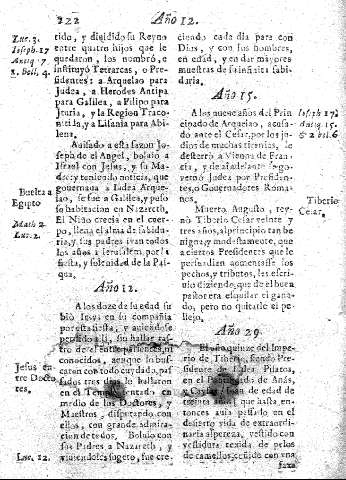 222
Año 12.
Luc. 3.
Ioseph. 17
Antiq. 7
2. Bell. 4.
tido, y dividido su Reyno
entre quatro hijos que le
quedaron, los nombró, e
instituyó Tetrarcas, o Pre-
sidentes: a Arquelao para
Judea, a Herodes Antipa
para Galilea, a Filipo para
Ituria, y la Region Traco-
nitida, y a Lisania para Abi-
lena.
Auisado a esta sazon Jo-
seph de el Angel, boluio a
Israel con Jesus, y su Ma-
dre; y teniendo noticia, que
gouernaua a Iudea Arque-
lao, se fue a Galilea, y puso
su habitacion en Nazareth.
El Niño crecia en el cuer-
po, llena el alma de sabidu-
ria, y sus padres ivan todos
los años a Ierusalem, por la
fiesta, y solenidad de la Pas-
qua.
Buelta a
Egipto
Math. 2.
Luc. 2.
Año 12.
A los doze de su edad su-
bió Iesus en su compañia
por esta fiesta, y auiendose
perdido allí, sin hallar ras-
tro de el entre parientes, ni
conocidos, aunque le bus-
caron con todo cuydado, pas-
sados tres dias le hallaron
en el Templo sentado en
medio de los Doctores, y
Maestros, disputando con
ellos, con grande admira-
cion de todos. Boluio con
sus Padres a Nazareth, y
viuiendoles sugeto, fue cre-
Jesus en-
tre Docto-
res.
Luc. 12.
ciendo cada dia para con
Dios, y con los hombres,
en edad, y en dar mayores
muestras de su infinita sabi-
duria.
Año 15.
A los nueve años del Prin-
cipado de Arquelao, acusa-
do ante el Cesar, por los ju-
dios de muchas tiranias, le
desterró a Vienna de Fran-
cia, y de ai adelante se go-
vernó Judea por Presiden-
tes, o Governadores Roma-
nos.
Ioseph 17
antiq. 15.
& 2 bel. 6
Muerto Augusto, rey-
nò Tiberio Cesar veinte y
tres años, al principio tan be-
nigna, y modestamente, que
a ciertos Presidentes que le
persuadian aumentasse los
pechos, y tributos, les escri-
uio diziendo, que de el buen
pastor era esquilar el gana-
do, pero no quitarle el pe-
llejo.
Tiberio
Cesar.
Año 29.
El año quinze del Impe-
rio de Tiberio, siendo Pre-
sidente de Iudea Pilatos,
en el Pontificado de Anás,
y Cayfas, Iuan de edad de
treinta años, que hasta en-
tonces auia passado en el
desierto vida de extraordi-
naria aspereza, vestido con
vestidura texida de pelos
de camellos, ceñido con vna
faxa